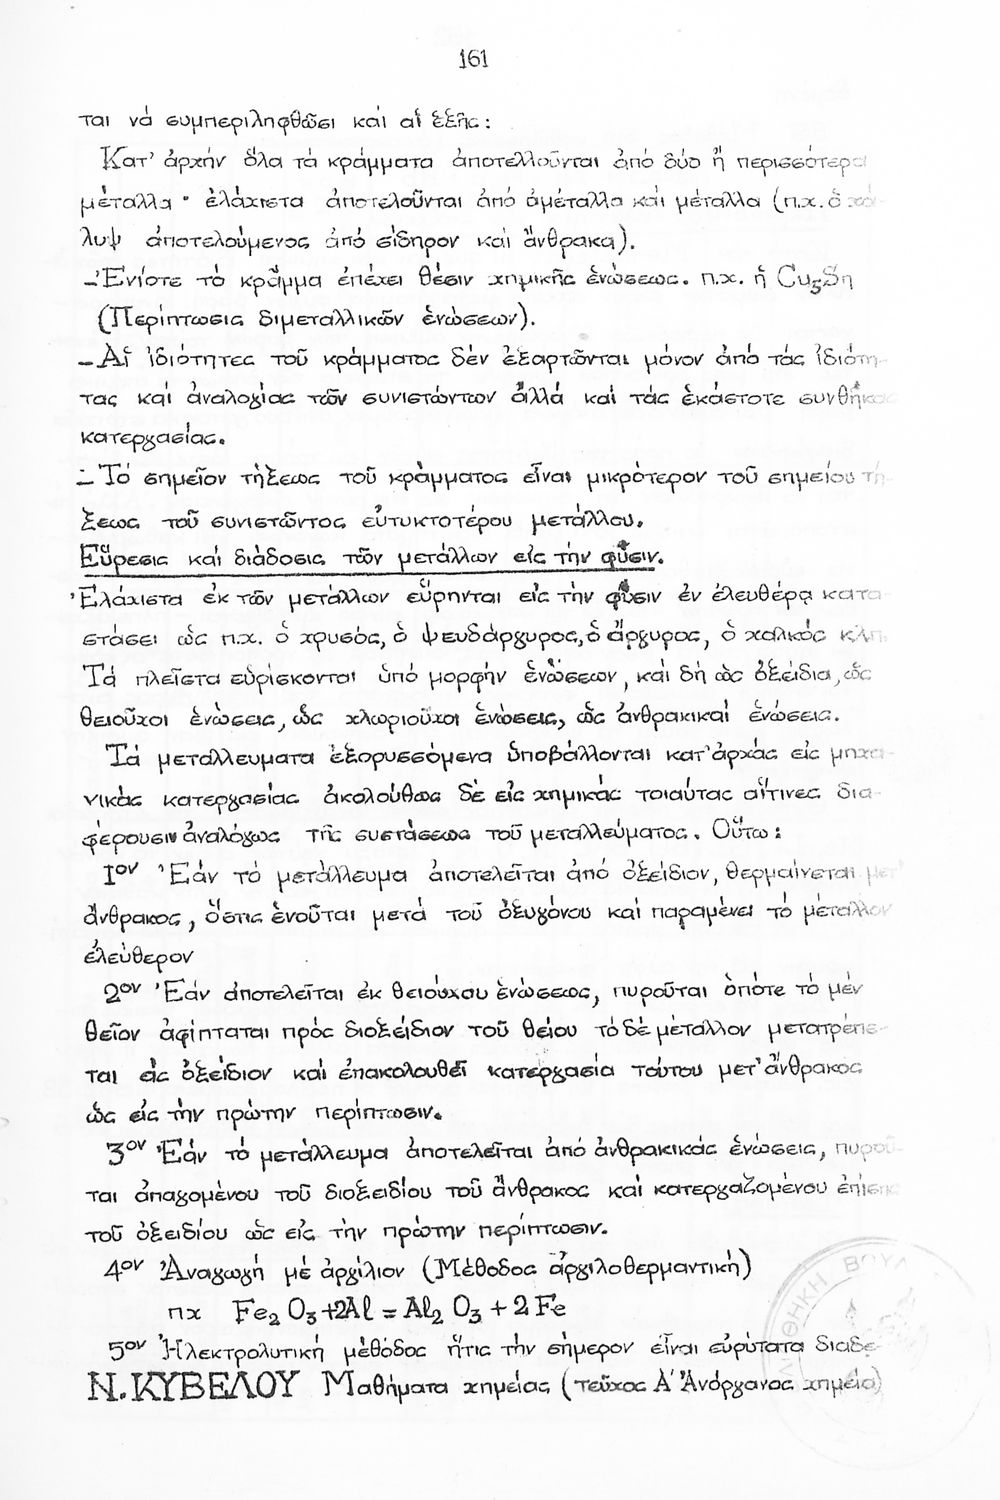 161
ται νά συμπεριληφθῶσι καί αἱ ἑξῆς:
Κατ' ἀρχήν ὅλα τά κράμματα ἀποτελλοῦνται ἀπό δύο ἤ περισσότερα
μέταλλα · ἐλάχιστα ἀποτελοῦνται ἀπό ἀμέταλλα καί μέταλλα (π.χ. ὁ χά-
λυψ ἀποτελούμενος ἀπό σίδηρον καί ἄνθρακα).
-Ἐνίοτε τό κρᾶμμα ἐπέχει θέσιν χημικῆς ἑνώσεως. π.χ. ἡ Cu5Sn
(Περίπτωσις διμεταλλικῶν ἑνώσεων).
-Αἱ ἰδιότητες τοῦ κράμματος δέν ἐξαρτῶνται μόνον ἀπό τάς ἰδιότη-
τας καί ἀναλογίας τῶν συνιστώντων ἀλλά καί τάς ἑκάστοτε συνθήκας
κατεργασίας.
-Τό σημεῖον τήξεως τοῦ κράμματος εἶναι μικρότερον τοῦ σημείου τή-
ξεως τοῦ συνιστῶντος εὐτυκτοτέρου μετάλλου.
Εὕρεσις καί διάδοσις τῶν μετάλλων εἰς τήν φύσιν.
Ἐλάχιστα ἐκ τῶν μετάλλων εὕρηνται εἰς τήν φύσιν ἐν ἐλευθέρᾳ κατα-
στάσει ὡς π.χ. ὁ χρυσός, ὁ ψευδάργυρος, ὁ ἄργυρος, ὁ χαλκός κλπ.
Τά πλεῖστα εὑρίσκονται ὑπό μορφήν ἑνώσεων, καί δή ὡς ὀξείδια, ὡς
θειοῦχοι ἑνώσεις, ὡς χλωριοῦχοι ἑνώσεις, ὡς ἀνθρακικαί ἑνώσεις.
Τά μεταλλευματα ἐξορυσσόμενα ὑποβάλλονται κατ' ἀρχάς εἰς μηχα-
νικάς κατεργασίας ἀκολούθως δέ εἰς χημικάς τοιαύτας αἵτινες δια-
φέρουσιν ἀναλόγως τῆς συστάσεως τοῦ μεταλλεύματος. Οὕτω:
1ον Ἐάν τό μετάλλευμα ἀποτελεῖται ἀπό ὀξείδιον, θερμαίνεται μετ'
ἄνθρακος, ὅστις ἑνοῦται μετά τοῦ ὀξυγόνου καί παραμένει τό μέταλλον
ἐλεύθερον
2ον Ἐάν ἀποτελεῖται ἐκ θειούχου ἑνώσεως, πυροῦται ὁπότε τό μέν
θεῖον ἀφίπταται πρός διοξείδιον τοῦ θείου τό δέ μέταλλον μετατρέπε-
ται εἰς ὀξείδιον καί ἐπακολουθεῖ κατεργασία τούτου μετ' ἄνθρακος
ὡς εἰς τήν πρώτην περίπτωσιν.
3ον Ἐάν τό μετάλλευμα ἀποτελεῖται ἀπό ἀνθρακικάς ἑνώσεις, πυροῦ-
ται ἀπαγομένου τοῦ διοξειδίου τοῦ ἄνθρακος καί κατεργαζομένου ἐπίσης
τοῦ ὀξειδίου ὡς εἰς τήν πρώτην περίπτωσιν.
4ον Ἀναγωγή μέ ἀργίλιον (Μέθοδος ἀργιλοθερμαντική)
πχ Fe2 O3+2Al = Al2 O3 + 2 Fe
5ον Ἠλεκτρολυτική μέθοδος ἥτις τήν σήμερον εἶναι εὐρύτατα διαδε-
Ν. ΚΥΒΕΛΟΥ Μαθήματα χημείας (τεῦχος Α' Ἀνόργανος χημεία)